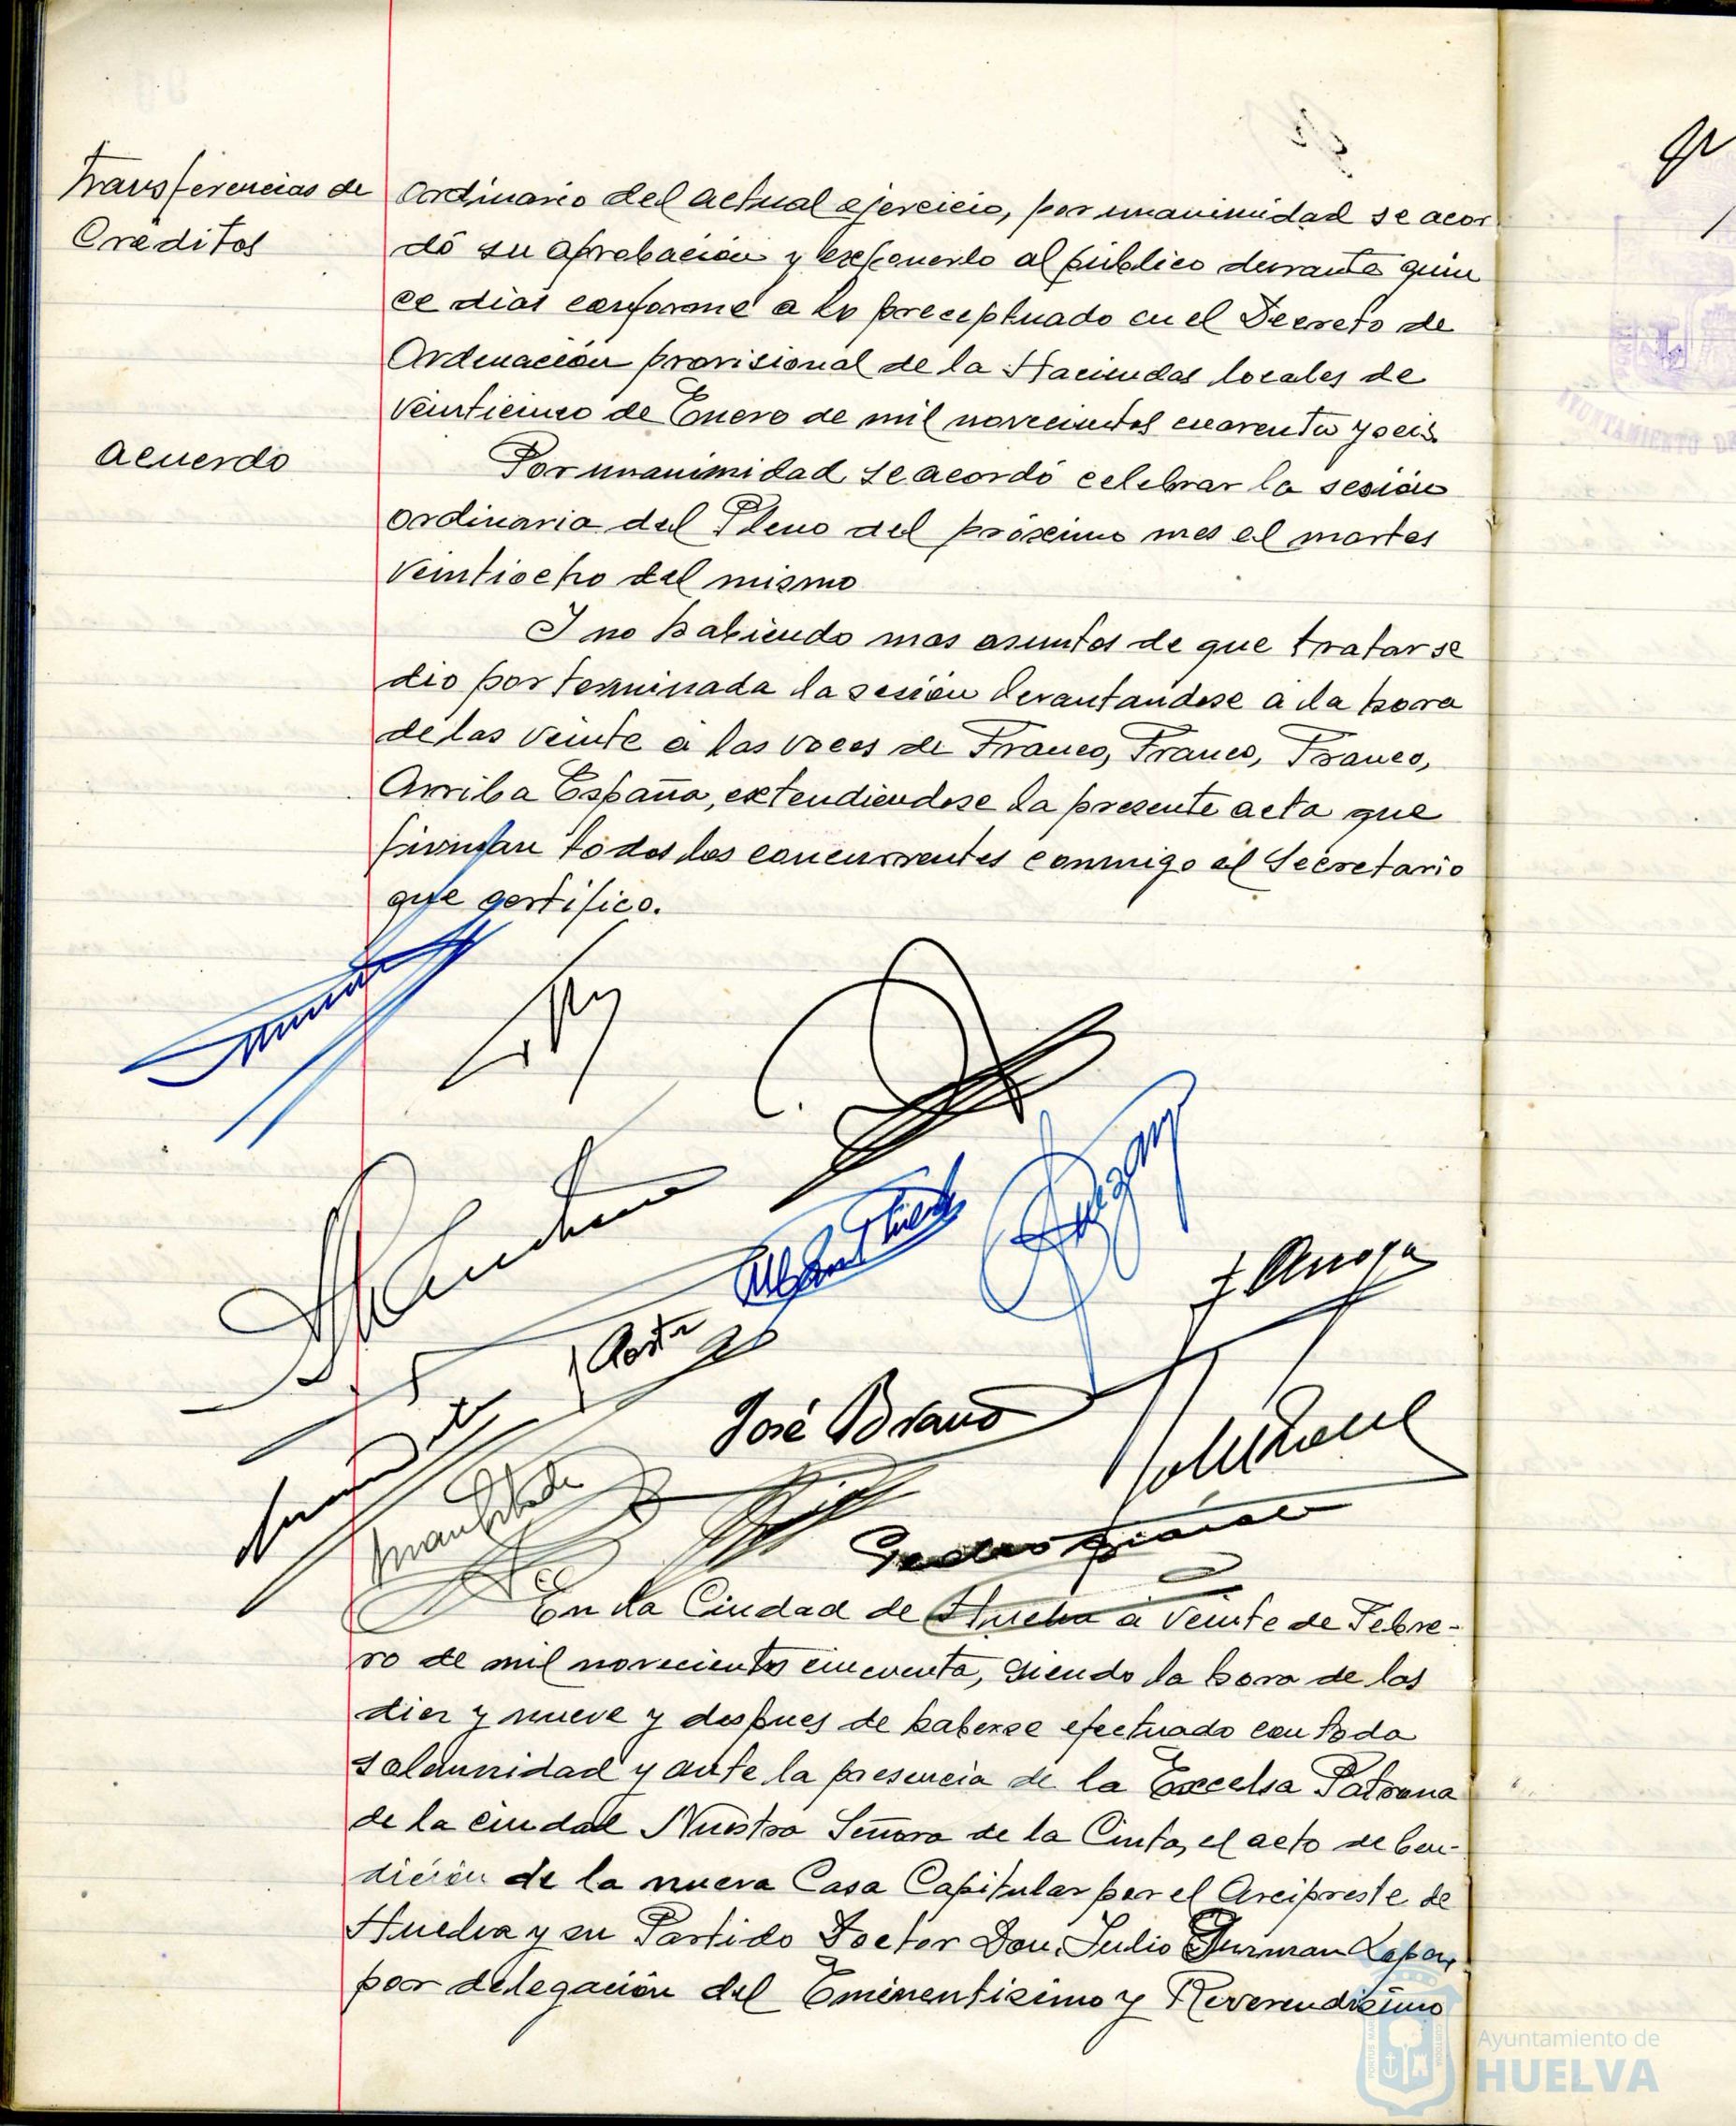 Transferencias de
Creditos
ordinario del actual ejercicio, por unanimidad se acor
dó su aprobación y exponerlo al público durante quin
ce dias conforme a lo preceptuado en el Decreto de
Ordenación provisional de la Haciendas locales de
Veinticinco de Enero de mil novecientos cuarenta y seis.
Acuerdo
Por unanimidad se acordó celebrar la sesión
ordinaria del Pleno del próximo mes el martes
Veintiocho del mismo
Y no habiendo mas asuntos de que tratar se
dio por terminada la sesión levantandose a la hora
de las veinte a las voces de Franco, Franco, Franco,
Arriba España, extendiendose la presente acta que
firman todos los concurrentes conmigo el Secretario
que certifico.
José Bravo
En la Ciudad de Huelva a veinte de Febre-
ro de mil novecientos cincuenta, siendo la hora de las
diez y nueve y despues de haberse efectuado con toda
solemnidad y ante la presencia de la Excelsa Patrona
de la ciudad Nuestra Señora de la Cinta, el acto de ben-
dición de la nueva Casa Capitular por el Arcipreste de
Huelva y su Partido Doctor Don Julio Guzman Lopez,
por delegación del Eminentisimo y Reverendisimo
Ayuntamiento de
HUELVA